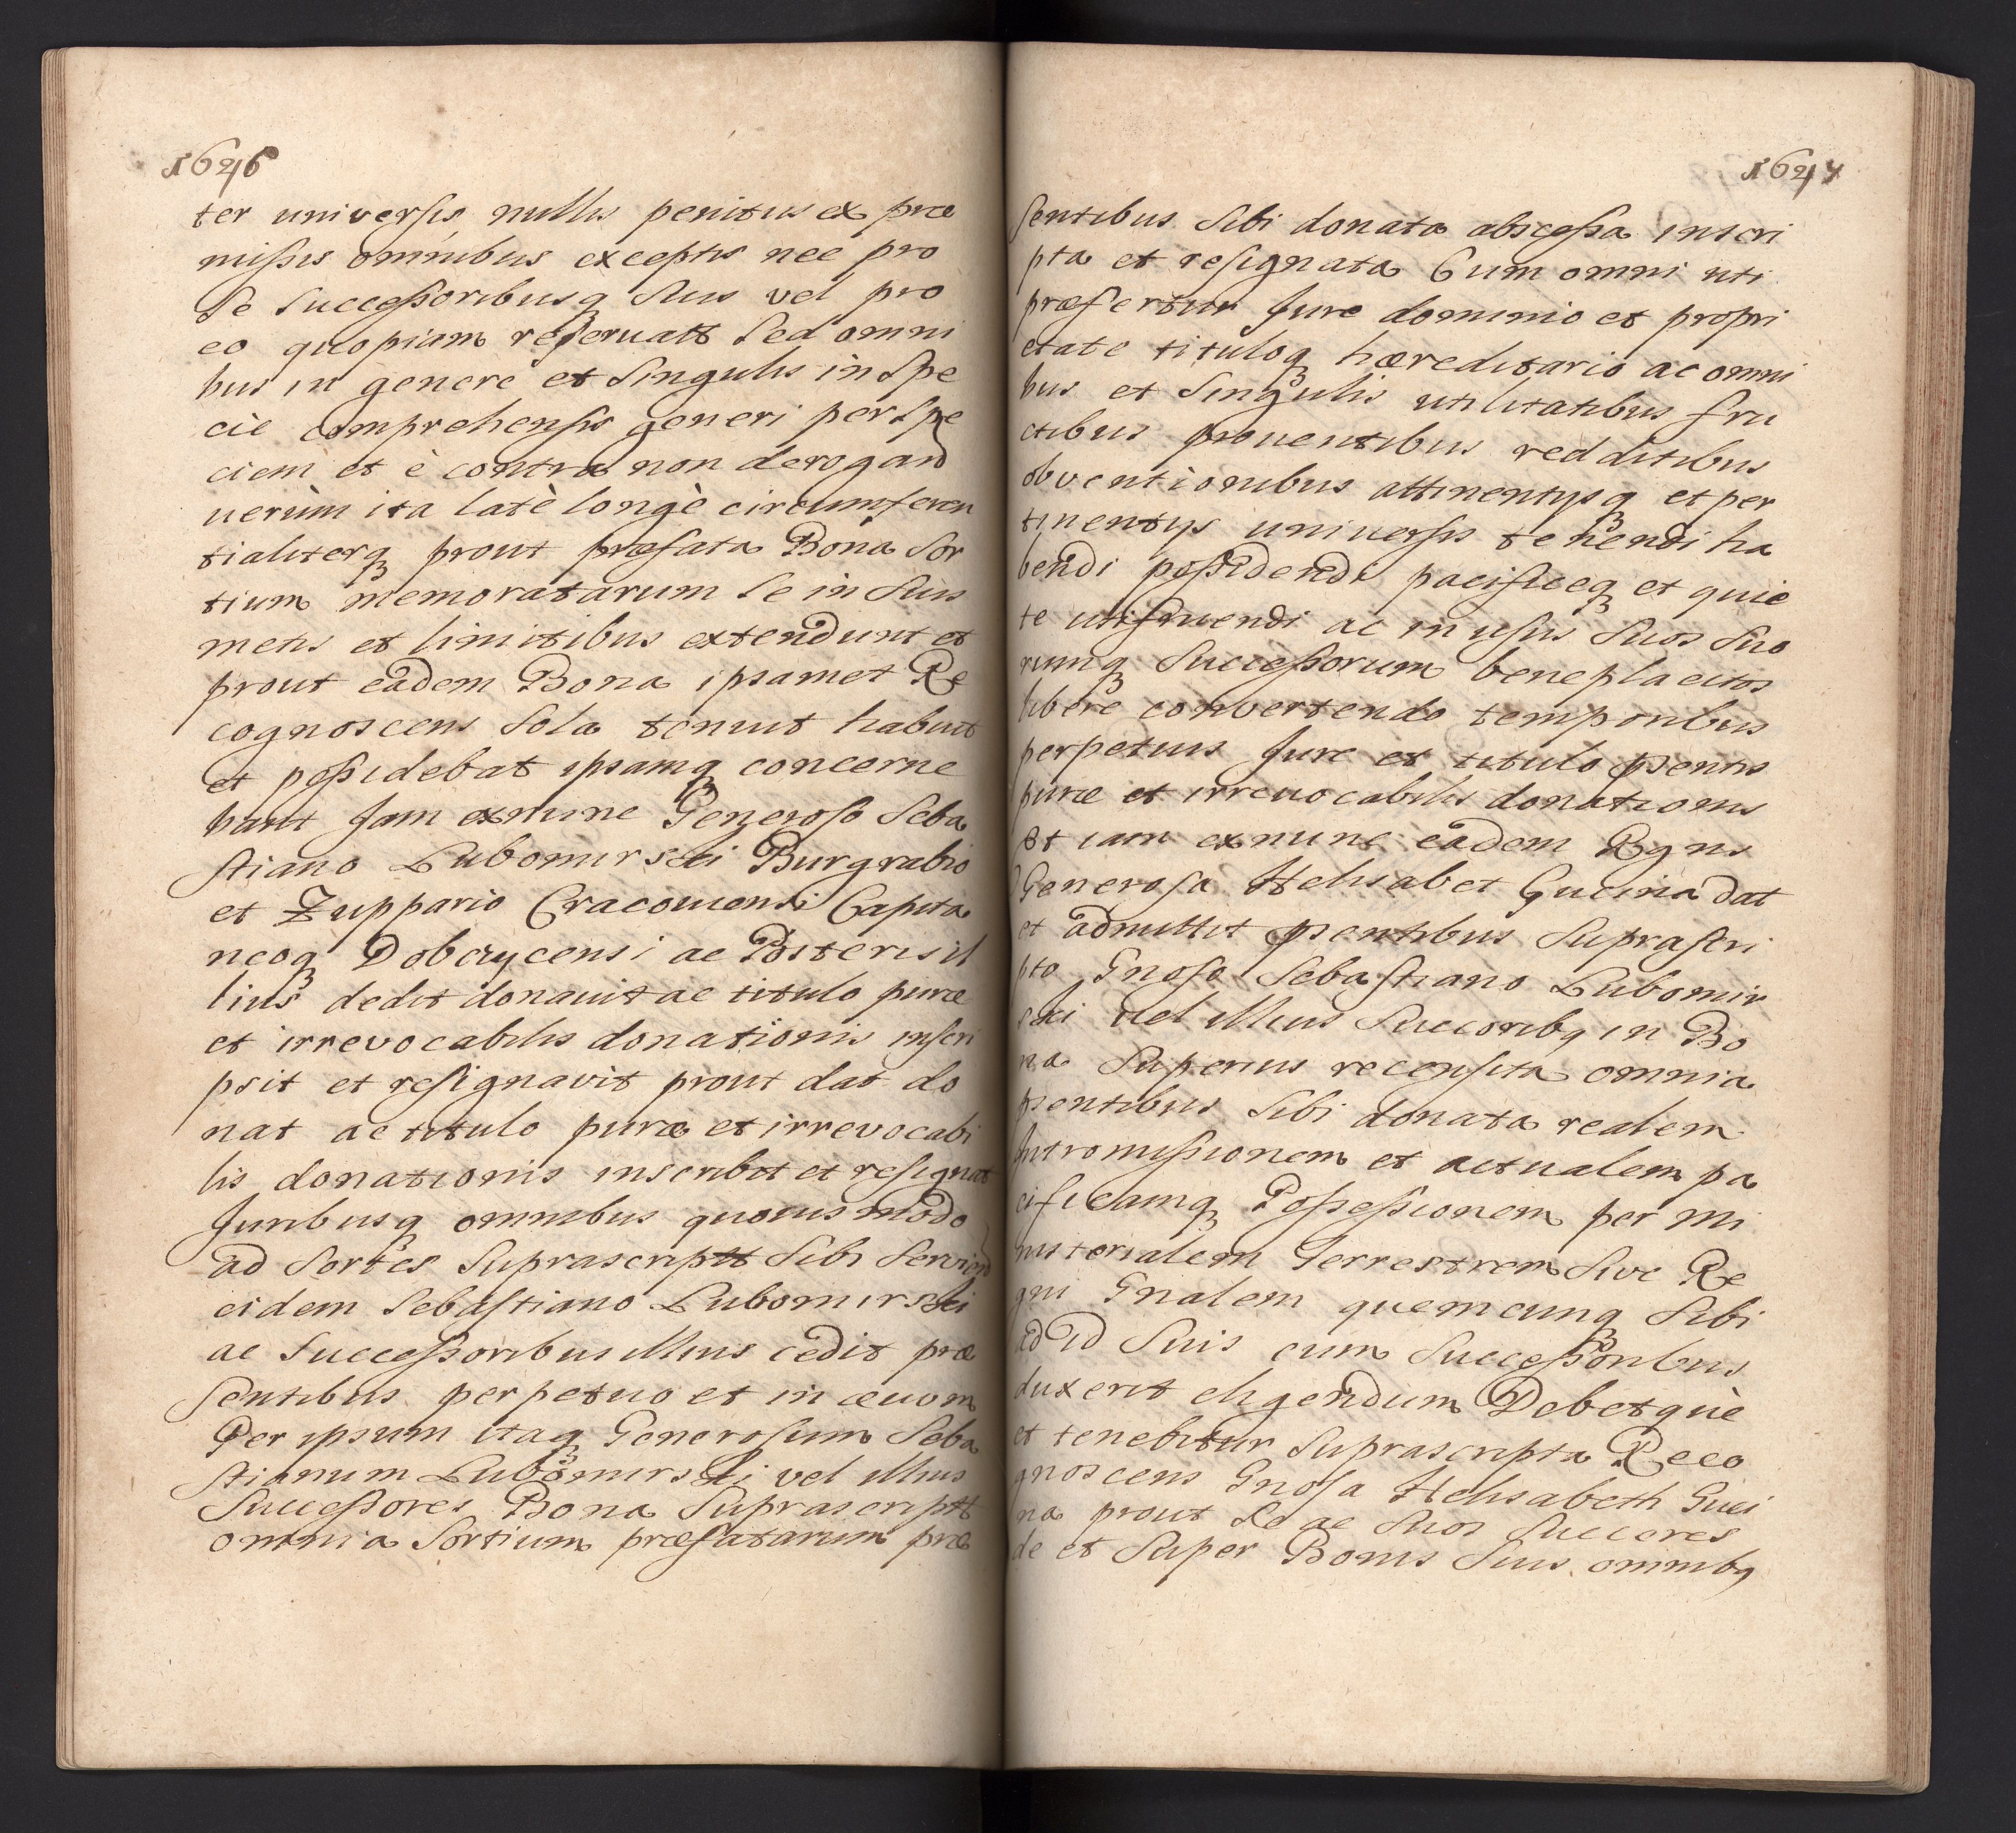 1646
ter universis, nullis penitus ex præ
missis omnibus exceptis nec pro
se successoribusq suis vel pro
eo quopiam reseruatt sed omni
bus in genere et singulis in spe
cie comprehensis generi per spe
ciem et è contra non derogand
uerùm ita latè longè circumferen
tialiterq prout præfata Bona Sor
tium memoratarum se in suis
metis et limitibus extendunt et
prout eadem Bona ipsamet Re
cognoscens sola tenuit habuit
et possidebat ipsamq concerne
bant Jam exnunc Generoso Seba
stiano Lubomirski Burgrabio
et Zuppario Cracouiensi Capita
neoq Dobczycensi ac Posteris il
lius dedit donauit ac titulo puræ
et irrevocabilis donationis inscri
psit et resignavit prout dat do
nat ac titulo puræ et irrevocabi
lis donationis inscribit et resignat
Juribusq omnibus quouis modo
ad Sortes suprascriptt sibi seruien
eidem Sebastiano Lubomirski
ac Successoribus illius cedit præ
sentibus perpetuo et in æuom
Per ipsum itaq Generosum Seba
stianum Lubomirski vel illius
Successores Bona suprascriptt
omnia Sortium præfatarum præ
1647
sentibus sibi donata abscessa inscri
pta et resignata Cum omni uti
præfertur Jure dominio et propri
etate tituloq hæreditario ac omni
bus et singulis utilitatibus fru
ctibus prouentibus redditibus
obventionibus attinentysq et per
tinentys uniuersis tenendi ha
bendi possidendi pacificeq et quie
te utifruendi ac in usus suos suo
rumq Successorum beneplacitos
libere convertendo temporibus
perpetuis Jure et titulo psentis
puræ et irreuocabilis donationis
Et iam exnunc eadem Rgns
Generosa Helisabet Gucina dat
et admittit psentibus suprascri
pto Gnoso Sebastiano Lubomir
ski vel illius Succoribq in Bo
na superius recensita omnia
psentibus sibi donata realem
Intromissionem et actualem pa
cificamq Possessionem per mi
nisterialem Terrestrem sive Re
gni Gnalem quemcunq sibi
ad id suis cum Successoribus
duxerit eligendum Debetquè
et tenebitur suprascripta Reco
gnoscens Gnosa Helisabeth Guci
na prout se ac suos succores
de et super Bonis suis omnibq